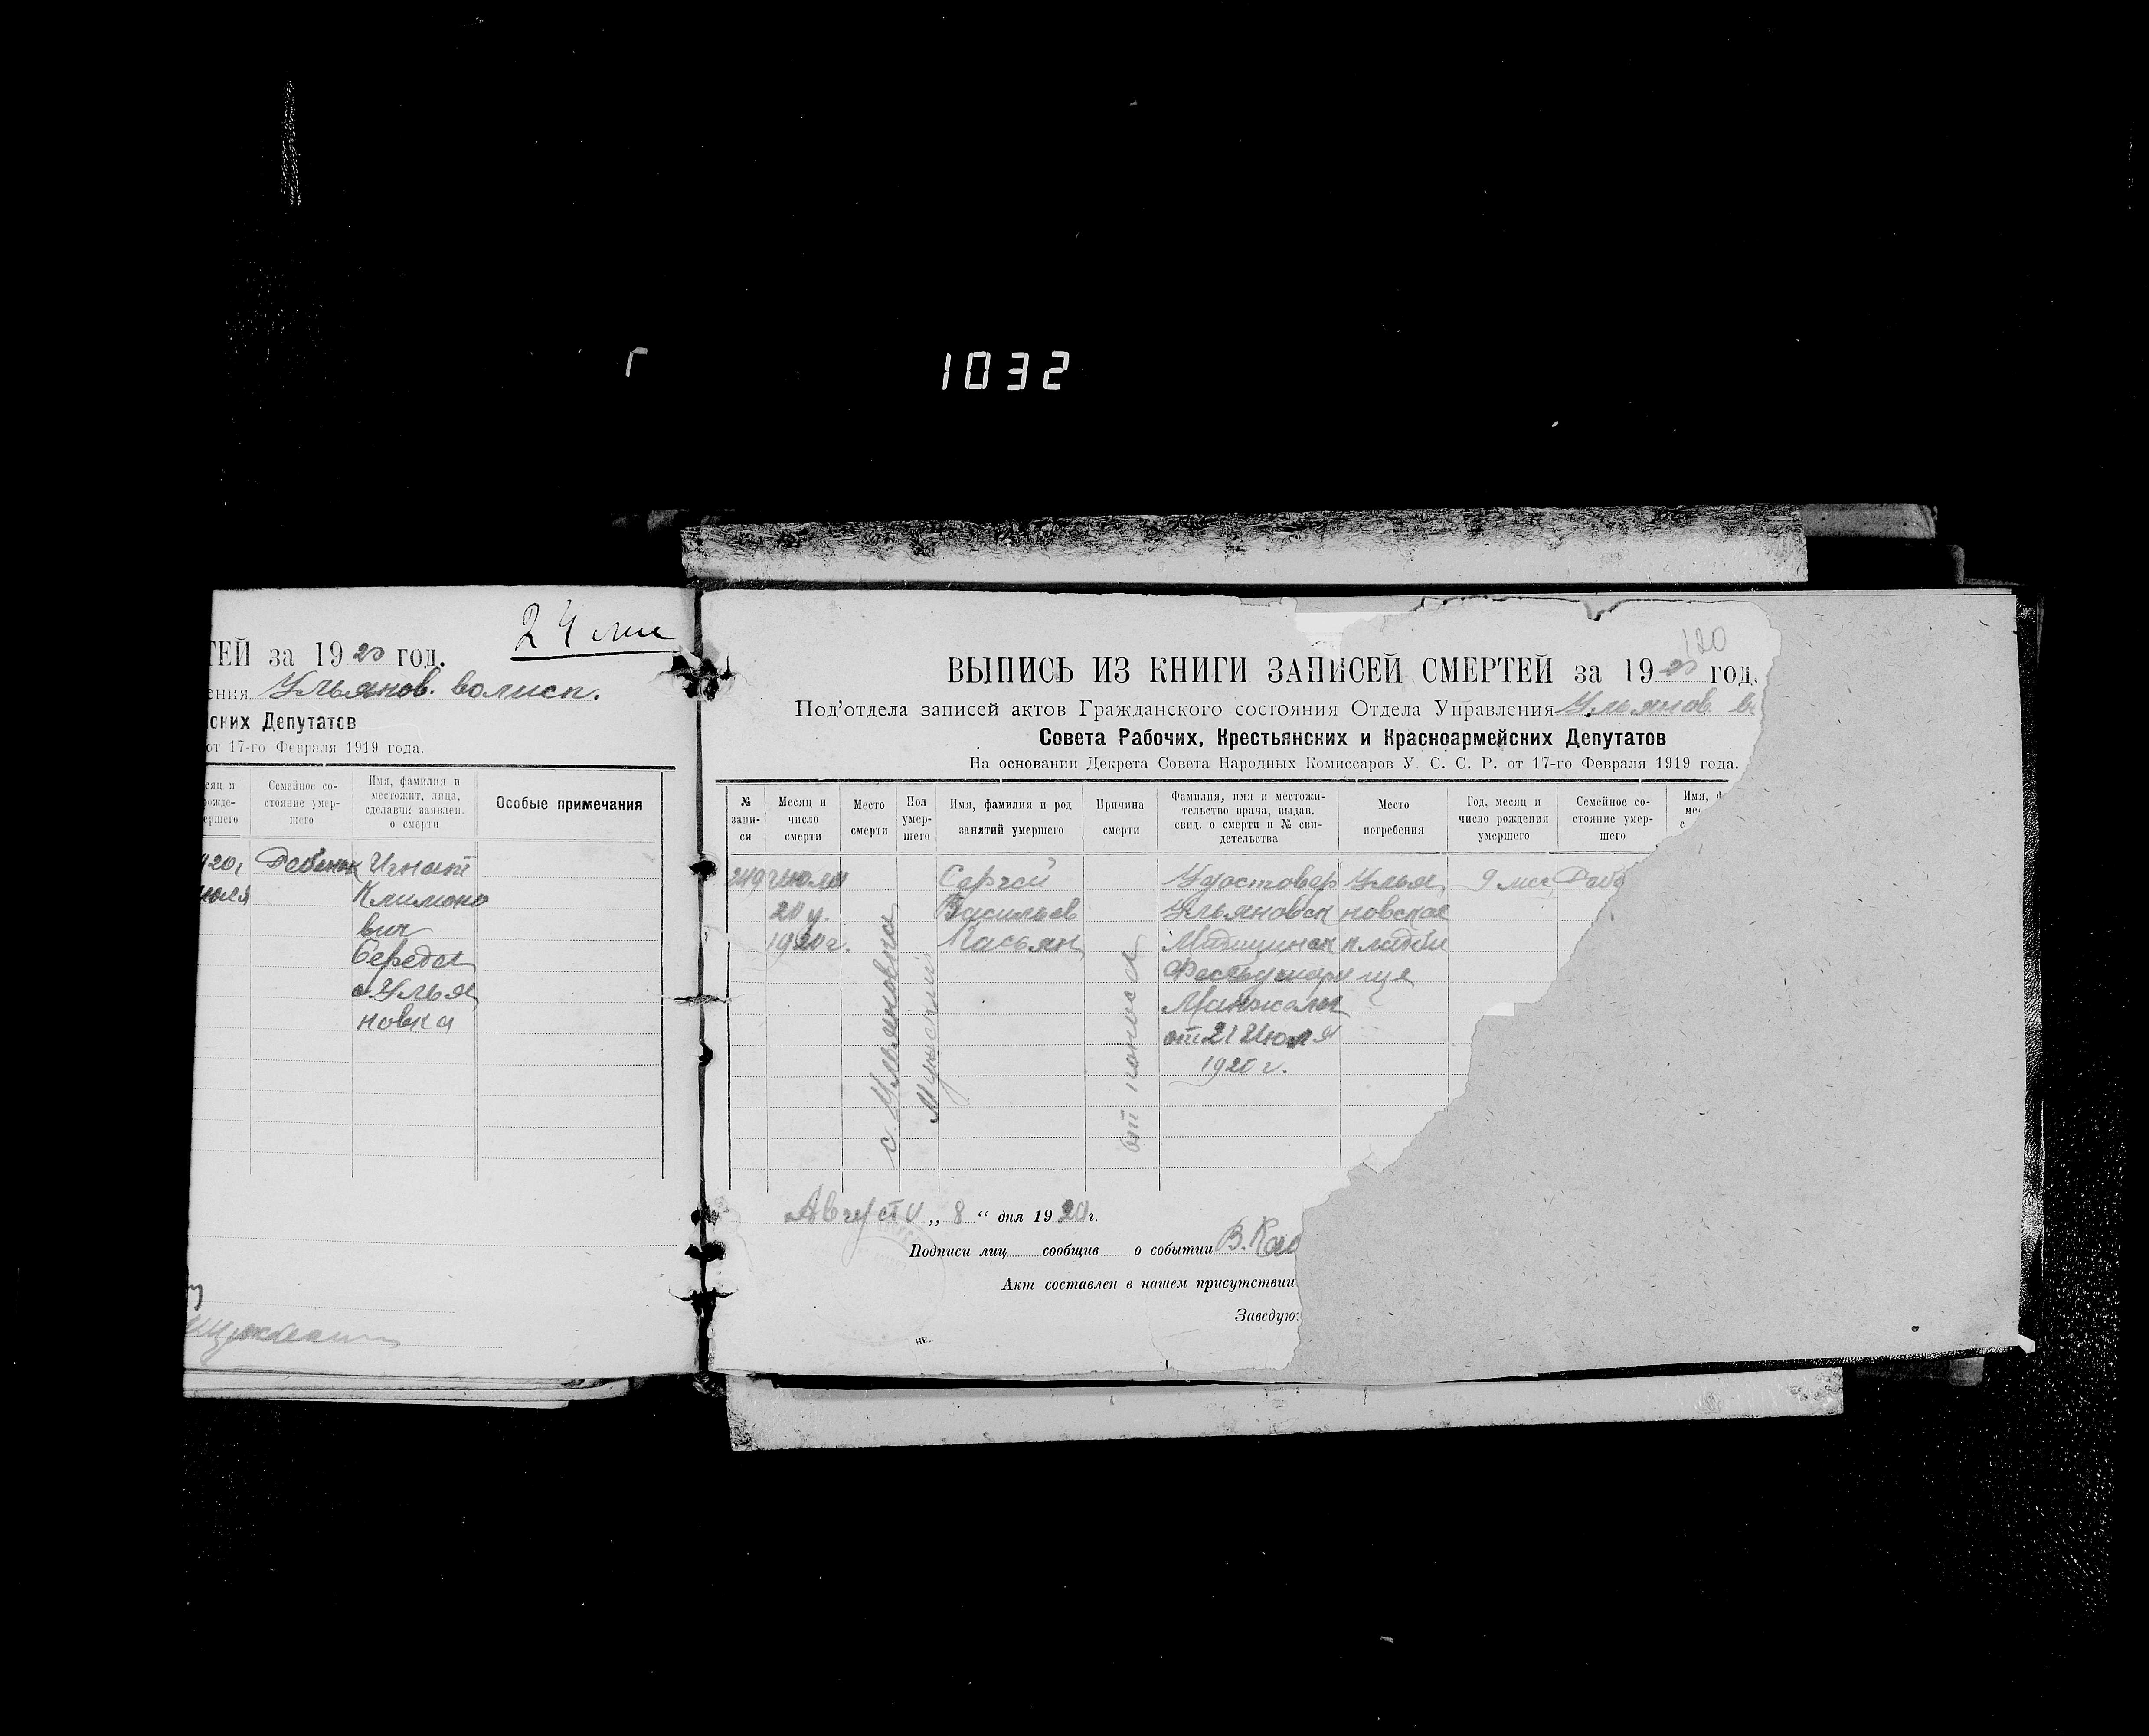 1032
24
ТЕЙ за 1920 год.
ения Ульянов. волисп.
ских Депутатов
от 17-го Февраля 1919 года.
сяц и
рожде-
ершего
Семейное со-
стояние умер-
шего
Имя, фамилия и
местожит. лица,
сделавш. заявлен.
о смерти
Особые примечания
920г
июля
Игнат
Климоно
вич
Середа
с. Улья
новка
120
ВЫПИСЬ ИЗ КНИГИ ЗАПИСЕЙ СМЕРТЕЙ за 1920 год.
Под'отдела записей актов Гражданского состояния Отдела Управления Ульянов. в
Совета Рабочих, Крестьянских и Красноармейских Депутатов
На основании Декрета Совета Народных Комиссаров У. С. С. Р. от 17-го Февраля 1919 года.
№
запи-
си
Месяц и
число
смерти
Место
смерти
Пол
умер-
шего
Имя, фамилия и род
занятий умершего
Причина
смерти
Фамилия, имя и местожи-
тельство врача, выдав.
свид. о смерти и № сви-
детельства
Место
погребения
Год, месяц и
число рождения
умершего
Семейное со-
стояние умер-
шего
Имя, ф
мес
с
249
Июля
20 д.
1920 г.
с. Ульяновка
Мужский
Сергей
Васильев
Касьян
от поноса
Удостовер
Ульяновск
Медицинск
Фельдшера
Манжалы
от 21 Июля
1920 г.
Улья
новское
кладби
ще
9 мес
Августа „ 8 “ дня 1920 г.
Подписи лиц сообщив о событии В. Кас
Акт составлен в нашем присутствии
Заведую